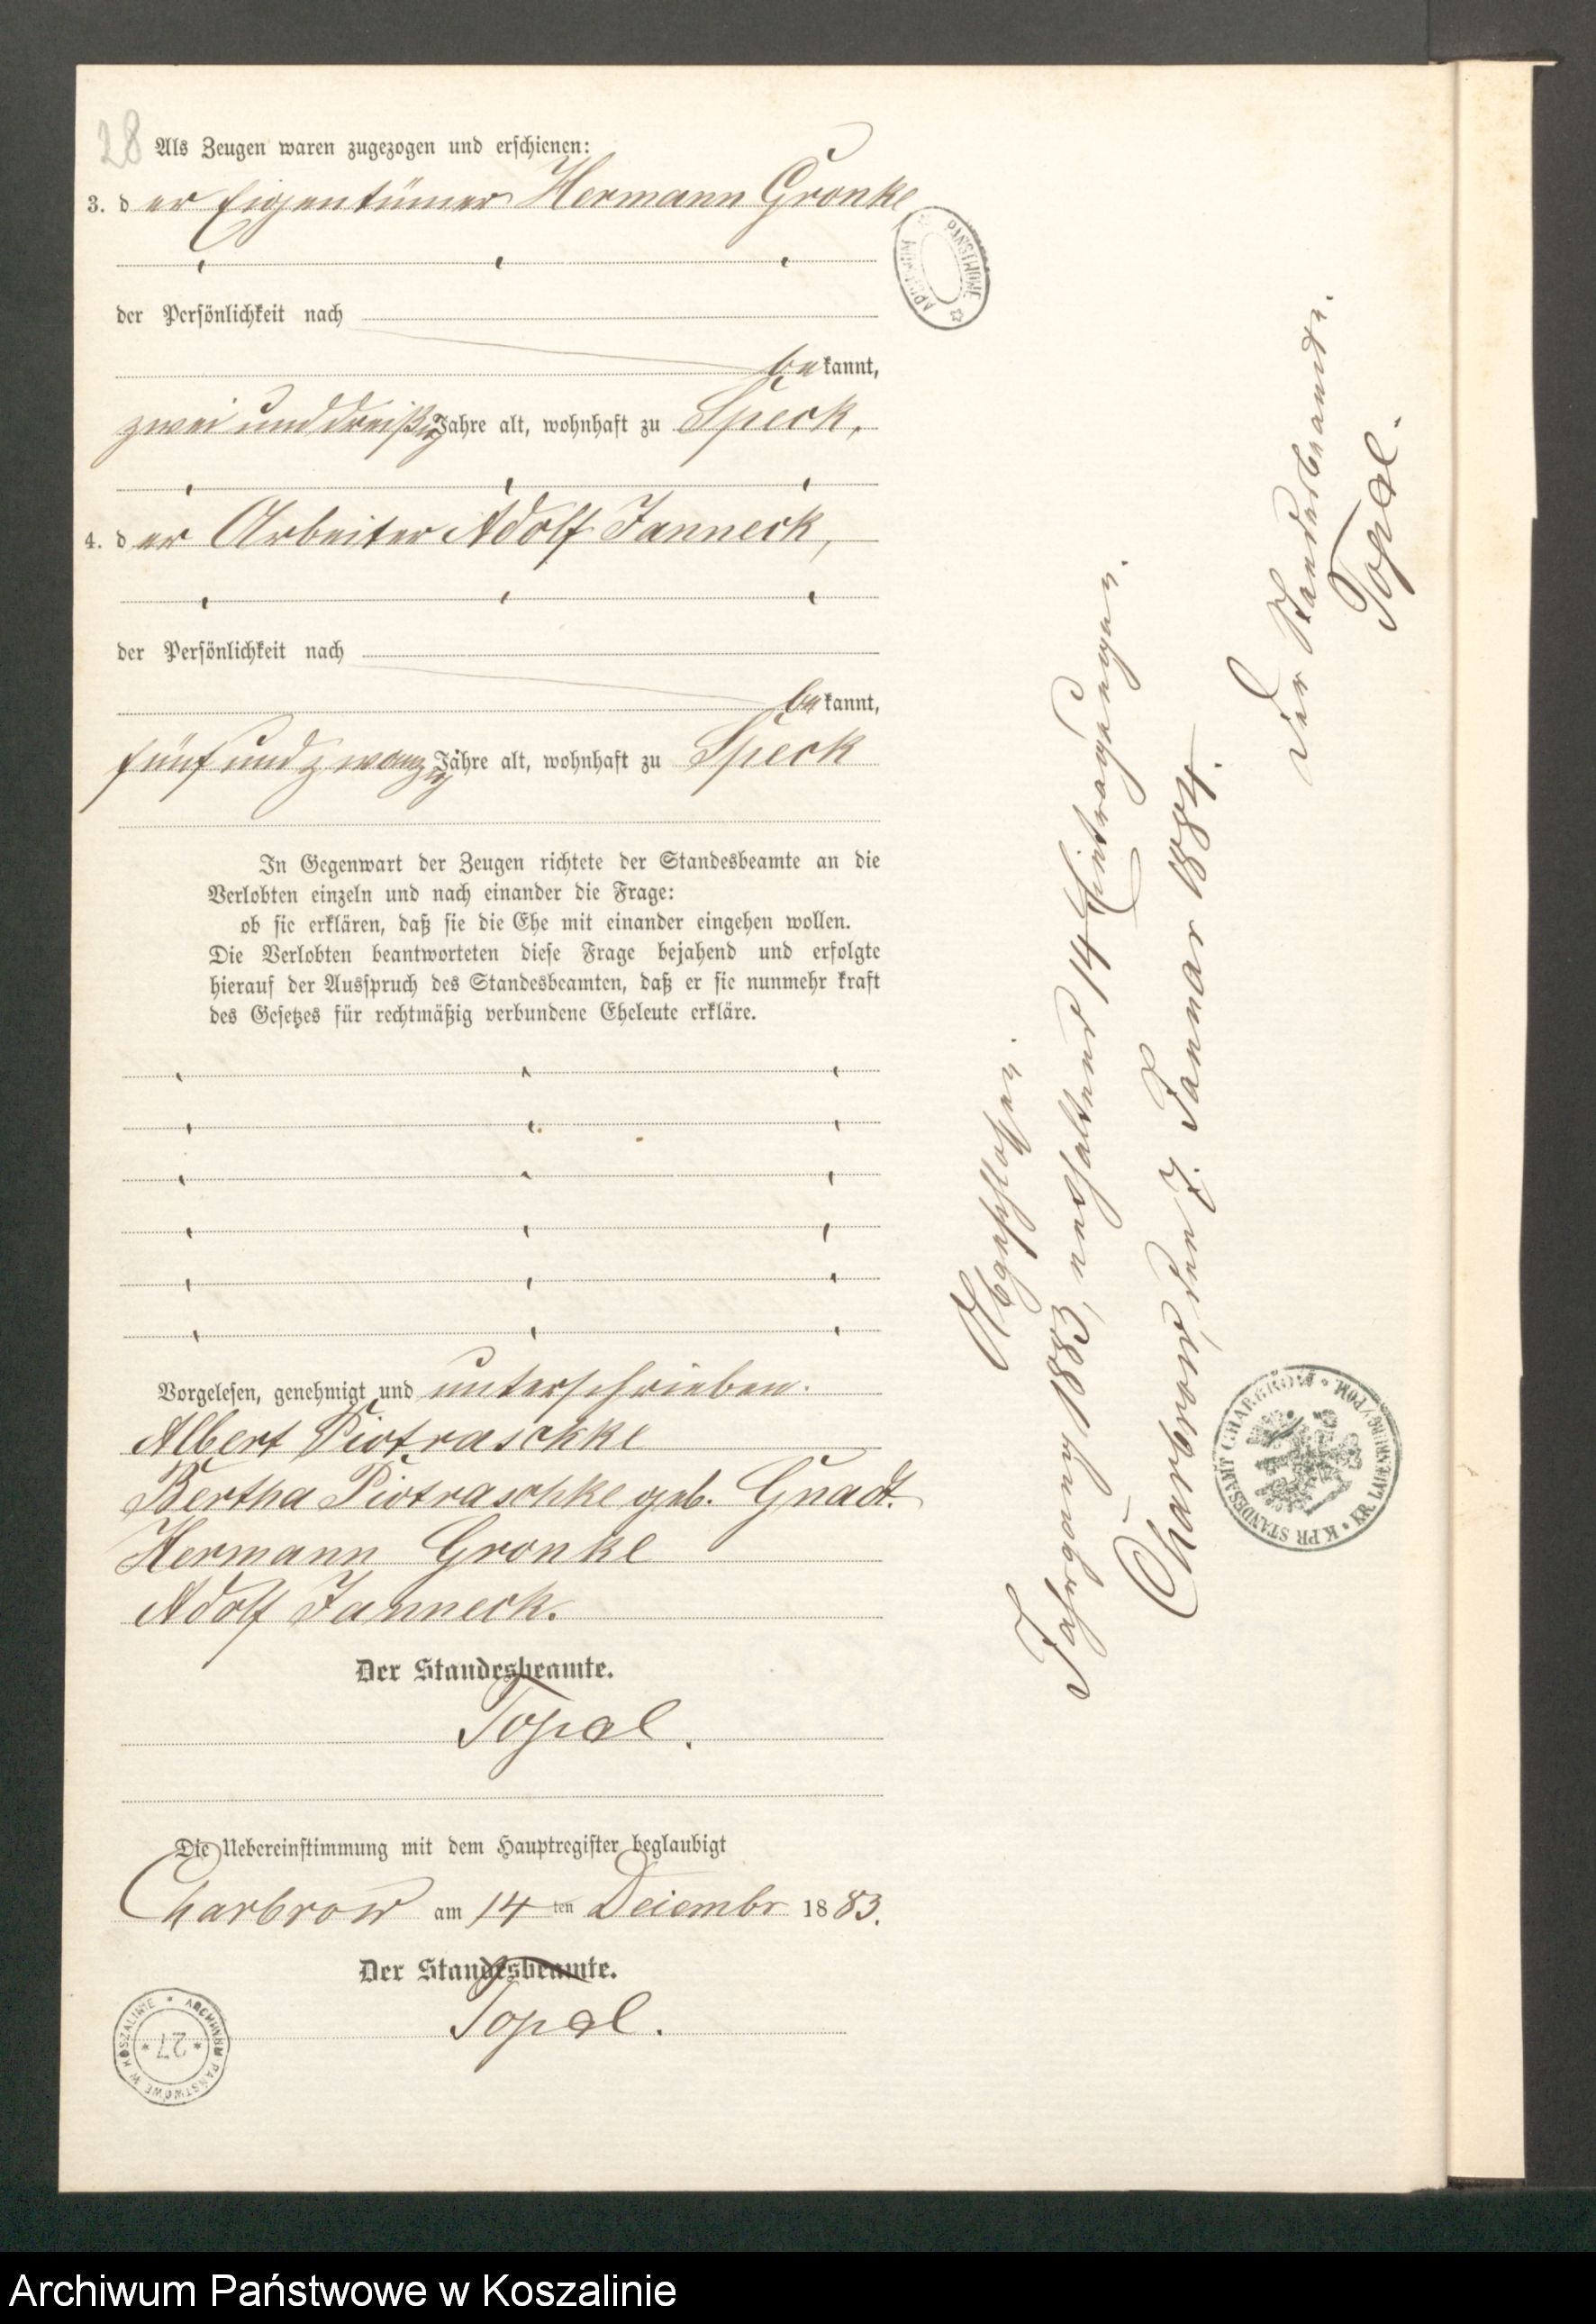 28 Als Zeugen waren zugezogen und erschienen:
3. der Eigentümer Hermann Gronke
der Persönlichkeit nach
bekannt,
zwei und dreißig Jahre alt, wohnhaft zu Speck,
4. der Arbeiter Adolf Janneck,
der Persönlichkeit nach
bekannt,
fünf und zwanzig Jahre alt, wohnhaft zu Speck
In Gegenwart der Zeugen richtete der Standesbeamte an die
Verlobten einzeln und nach einander die Frage:
ob sie erklären, daß sie die Ehe mit einander eingehen wollen.
Die Verlobten beantworteten diese Frage bejahend und erfolgte
hierauf der Ausspruch des Standesbeamten, daß er sie nunmehr kraft
des Gesetzes für rechtmäßig verbundene Eheleute erkläre.
Vorgelesen, genehmigt und unterschrieben.
Albert Piotraschke
Bertha Piotraschke geb. Gnadt.
Hermann Gronke
Adolf Janneck.
Der Standesbeamte.
Topel.
Die Uebereinstimmung mit dem Hauptregister beglaubigt
Charbrow am 14 ten Decembr 1883.
Der Standesbeamte.
Topel.
Abgeschlossen.
Jahrgang 1883, enthaltend 14 Eintragungen.
Charbrow, den 7. Januar 1884.
Der Standesbeamte.
Topel.
ARCHIWUM PAŃSTWOWE
K.PR STANDESAMT CHARBROW • KR. LAUENBURG / POM.
ARCHIWUM PAŃSTWOWE W KOSZALINIE
* 27 *
Archiwum Państwowe w Koszalinie